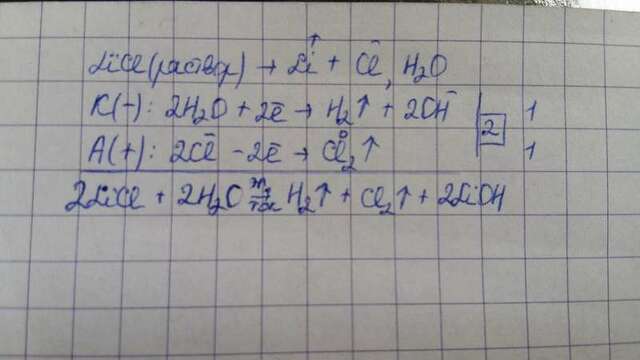 LiCl (раствор) → Li⁺ + Cl⁻, H₂O
K(-): 2H₂O + 2ē → H₂↑ + 2OH⁻ | 2 | 1
A(+): 2Cl⁻ - 2ē → Cl₂⁰↑ | 1
2LiCl + 2H₂O эл. ток = H₂↑ + Cl₂↑ + 2LiOH